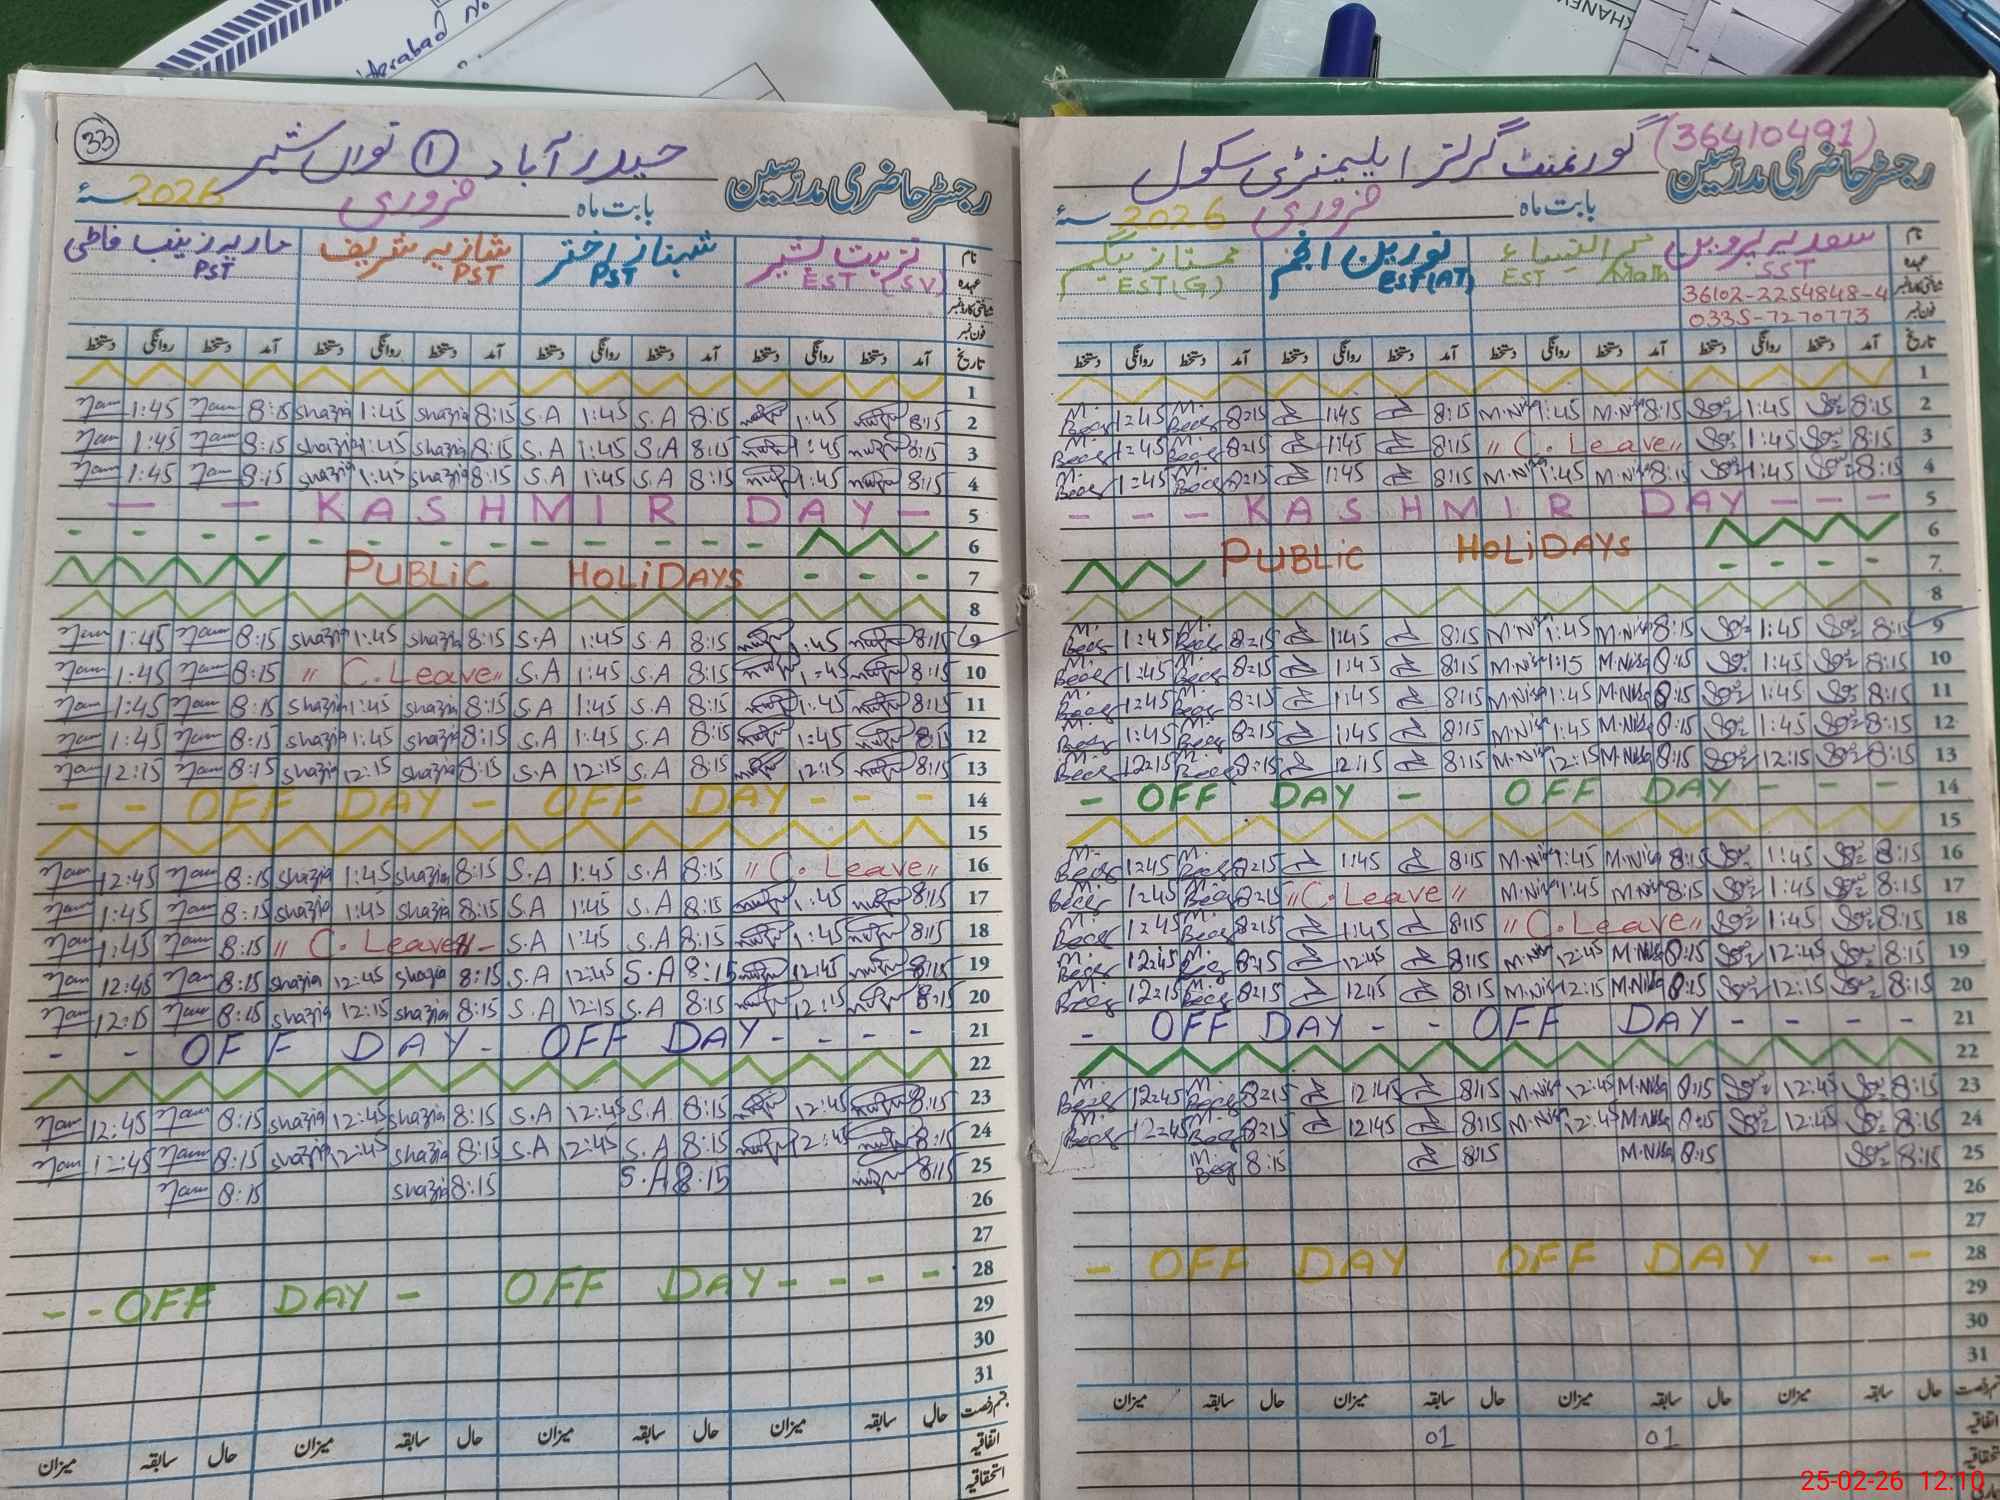 Hyderabad No
KHANEW
33
حیدر آباد ① نواں شہر
رجسٹر حاضری مدرسین
بابت ماہ فروری 2026 سنۂ
نام
عہدہ
شناختی کارڈ نمبر
فون نمبر
شہناز اختر شازیہ شریف ماریہ زینب
EST (SV) PST PST PST
تاریخ آمد دستخط روانگی دستخط آمد دستخط روانگی دستخط آمد دستخط روانگی دستخط آمد دستخط روانگی دستخط
1
Nam 1:45 Nam 8:15 Shazia 1:45 Shazia 8:15 S.A 1:45 S.A 8:15 1:45 8:15 2
Nam 1:45 Nam 8:15 Shazia 1:45 Shazia 8:15 S.A 1:45 S.A 8:15 1:45 8:15 3
Nam 1:45 Nam 8:15 Shazia 1:45 Shazia 8:15 S.A 1:45 S.A 8:15 1:45 8:15 4
— — KASHMIR DAY — 5
6
PUBLIC HOLIDAYS - - - 7
8
Nam 1:45 Nam 8:15 Shazia 1:45 Shazia 8:15 S.A 1:45 S.A 8:15 1:45 8:15 9
Nam 1:45 Nam 8:15 " C. Leave " S.A 1:45 S.A 8:15 1:45 8:15 10
Nam 1:45 Nam 8:15 Shazia 1:45 Shazia 8:15 S.A 1:45 S.A 8:15 1:45 8:15 11
Nam 1:45 Nam 8:15 Shazia 1:45 Shazia 8:15 S.A 1:45 S.A 8:15 1:45 8:15 12
Nam 12:15 Nam 8:15 Shazia 12:15 Shazia 8:15 S.A 12:15 S.A 8:15 12:15 8:15 13
- - OFF DAY - OFF DAY - - - 14
15
Nam 12:45 Nam 8:15 Shazia 1:45 Shazia 8:15 S.A 1:45 S.A 8:15 " C. Leave " 16
Nam 1:45 Nam 8:15 Shazia 1:45 Shazia 8:15 S.A 1:45 S.A 8:15 1:45 8:15 17
Nam 1:45 Nam 8:15 " C. Leave " - S.A 1:45 S.A 8:15 1:45 8:15 18
Nam 12:45 Nam 8:15 Shazia 12:45 Shazia 8:15 S.A 12:45 S.A 8:15 12:45 8:15 19
Nam 12:15 Nam 8:15 Shazia 12:15 Shazia 8:15 S.A 12:15 S.A 8:15 12:15 8:15 20
- - OFF DAY - OFF DAY - - - - 21
22
Nam 12:45 Nam 8:15 Shazia 12:45 Shazia 8:15 S.A 12:45 S.A 8:15 12:45 8:15 23
Nam 12:45 Nam 8:15 Shazia 12:45 Shazia 8:15 S.A 12:45 S.A 8:15 12:45 8:15 24
Nam 8:15 Shazia 8:15 S.A 8:15 8:15 25
26
27
- - OFF DAY - OFF DAY - - - - 28
29
30
31
حال سابقہ میزان حال سابقہ میزان حال سابقہ میزان حال سابقہ میزان
اتفاقیہ
استحقاقیہ
گورنمنٹ گرلز ایلیمنٹری سکول (36410491)
رجسٹر حاضری مدرسین
بابت ماہ فروری 2026 سنۂ
نام سعدیہ پروین مہر النساء نورین انجم ممتاز بیگم
عہدہ
SST EST Math EST (AT) EST (G)
شناختی کارڈ نمبر 36102-2254848-4
فون نمبر 0335-7270773
تاریخ آمد دستخط روانگی دستخط آمد دستخط روانگی دستخط آمد دستخط روانگی دستخط آمد دستخط روانگی دستخط
1
M. Beeg 1:45 M. Beeg 8:15 1:45 8:15 M.Nisa 1:45 M.Nisa 8:15 1:45 8:15 2
M. Beeg 1:45 M. Beeg 8:15 1:45 8:15 " C. Leave " 1:45 8:15 3
M. Beeg 1:45 M. Beeg 8:15 1:45 8:15 M.Nisa 1:45 M.Nisa 8:15 1:45 8:15 4
- - - KASHMIR DAY - - - 5
6
PUBLIC HOLIDAYS - - - - 7
8
M. Beeg 1:45 M. Beeg 8:15 1:45 8:15 M.Nisa 1:45 M.Nisa 8:15 1:45 8:15 9
M. Beeg 1:45 M. Beeg 8:15 1:45 8:15 M.Nisa 1:15 M.Nisa 8:15 1:45 8:15 10
M. Beeg 1:45 M. Beeg 8:15 1:45 8:15 M.Nisa 1:45 M.Nisa 8:15 1:45 8:15 11
M. Beeg 1:45 M. Beeg 8:15 1:45 8:15 M.Nisa 1:45 M.Nisa 8:15 1:45 8:15 12
M. Beeg 12:15 M. Beeg 8:15 12:15 8:15 M.Nisa 12:15 M.Nisa 8:15 12:15 8:15 13
- OFF DAY - OFF DAY - - - 14
15
M. Beeg 1:45 M. Beeg 8:15 1:45 8:15 M.Nisa 1:45 M.Nisa 8:15 1:45 8:15 16
M. Beeg 1:45 M. Beeg 8:15 " C. Leave " M.Nisa 1:45 M.Nisa 8:15 1:45 8:15 17
M. Beeg 1:45 M. Beeg 8:15 1:45 8:15 " C. Leave " 1:45 8:15 18
M. Beeg 12:45 M. Beeg 8:15 12:45 8:15 M.Nisa 12:45 M.Nisa 8:15 12:45 8:15 19
M. Beeg 12:15 M. Beeg 8:15 1245 8:15 M.Nisa 12:15 M.Nisa 8:15 12:15 8:15 20
- OFF DAY - - OFF DAY - - - - 21
22
M. Beeg 12:45 M. Beeg 8:15 12:45 8:15 M.Nisa 12:45 M.Nisa 8:15 12:45 8:15 23
M. Beeg 12:45 M. Beeg 8:15 12:45 8:15 M.Nisa 12:45 M.Nisa 8:15 12:45 8:15 24
M. Beeg 8:15 8:15 M.Nisa 8:15 8:15 25
26
27
- OFF DAY OFF DAY - - - 28
29
30
31
حال سابقہ میزان حال سابقہ میزان حال سابقہ میزان حال سابقہ میزان
اتفاقیہ 01 01
25-02-26 12:10